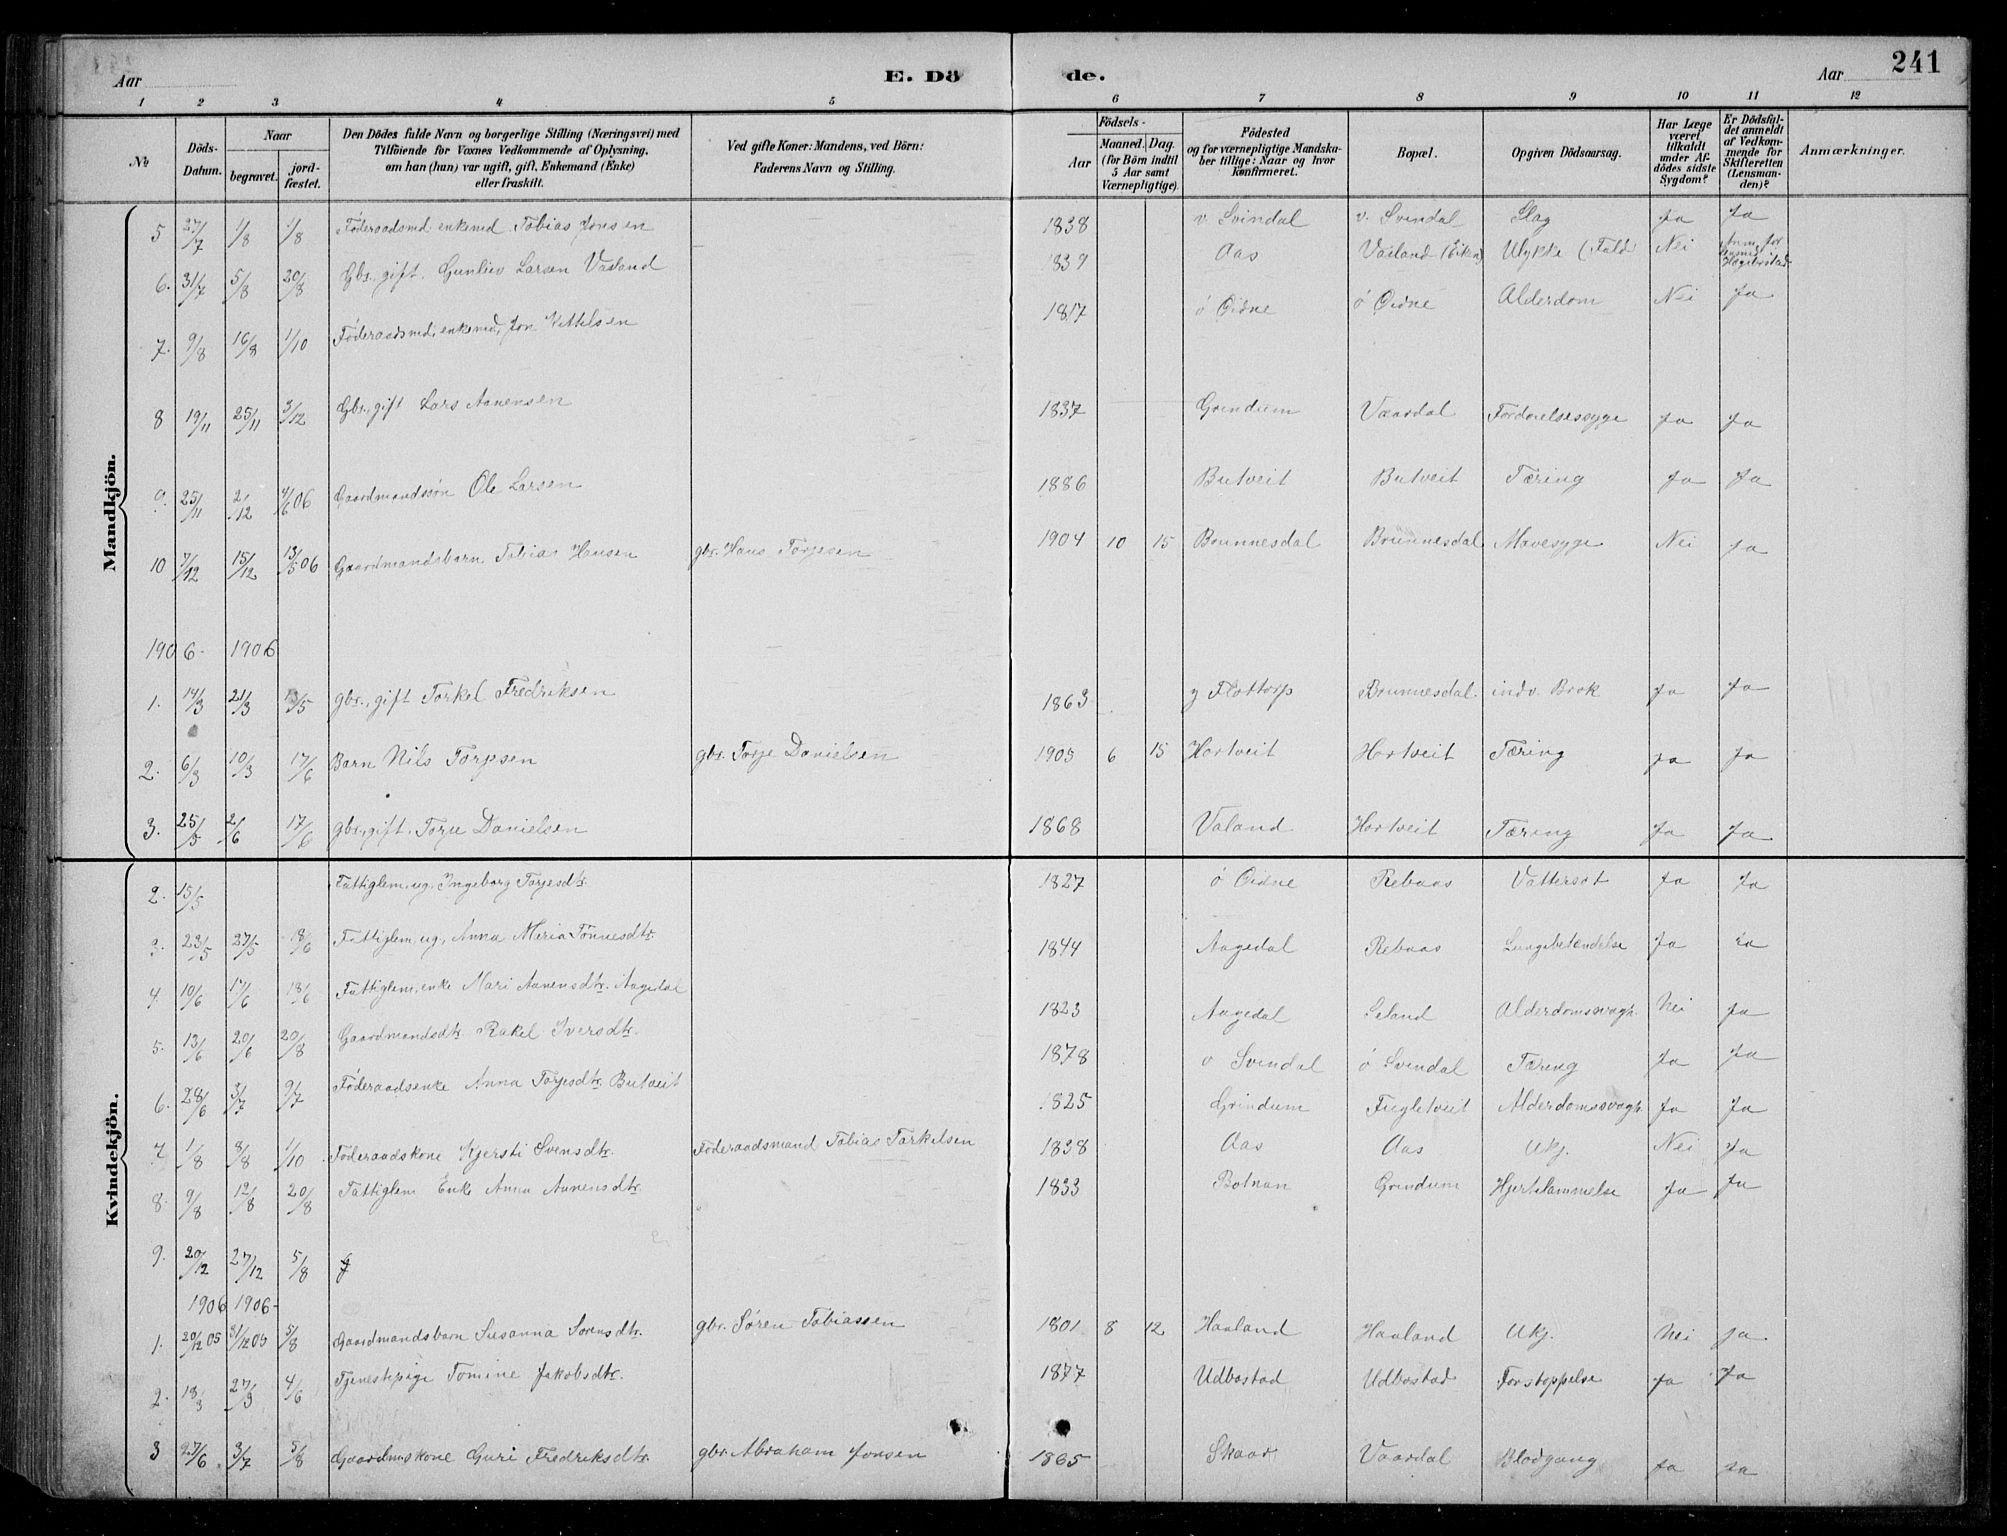 241
Aar E. Dö de. Aar
1 2 3 4 5 6 7 8 9 10 11 12
No
Döds-Datum.
Naar
begravet.
jord-fæstet.
Den Dödes fulde Navn og borgerlige Stilling (Næringsvei) med Tilföiende for Voxnes Vedkommende af Oplysning, om han (hun) var ugift, gift, Enkemand (Enke) eller fraskilt.
Ved gifte Koner: Mandens, ved Börn: Faderens Navn og Stilling.
Födsels-
Aar
Maaned. Dag.
(for Börn indtil 5 Aar samt Værnepligtige).
Födested og for værnepligtige Mandskaber tillige: Naar og hvor konfirmeret.
Bopæl.
Opgiven Dödsaarsag.
Har Læge været tilkaldt under Afdödes sidste Sygdom?
Er Dödsfaldet anmeldt af Vedkommende for Skifteretten (Lensmanden)?
Anmærkninger.
Mandkjön.
5 27/7 1/8 1/8 Föderaadsmd. enkemd. Tobias Jonsen 1838 v Svindal v. Svindal Slag Ja Ja
6. 31/7 5/8 20/8 Gbr. gift. Gunliev Larsen Vasland 1839 Aas Vasland (Eiken) Ulykke (Fald) Nei Anm. for Hægebostad
7. 9/8 16/8 1/10 Föderaadsmd, enkemd, Jon Kittelsen 1817 ö Öidne ö Öidne Alderdom Nei Ja
8 19/11 25/11 3/12 Gbr., gift Lars Aanensen 1837 Grindum Vaardal Fordöielsessyge Ja Ja
9. 25/11 2/12 4/6 06 Gaardmandssön Ole Larsen 1886 Butveit Butveit Tæring Ja Ja
10 7/12 15/12 13/5 06 Gaardmandsbarn Tobias Hansen gbr. Hans Torjesen 1904 10 15 Brunnesdal Brunnesdal Mavesyge Nei Ja
1906- 1906
1. 14/3 21/3 13/5 gbr., gift Torkel Fredriksen 1863 y Flottorp Brunnesdal. indv. Brok Ja Ja
2. 6/3 10/3 17/6 Barn Nils Torjesen gbr. Torje Danielsen 1905 6 15 Hortveit Hortveit Tæring Ja Ja
3. 25/5 2/6 17/6 gbr., gift. Torje Danielsen 1868 Valand Hortveit Tæring Ja Ja
Kvindekjön.
2. 15/5 Fattiglem, ug, Ingeborg Torjesdtr. 1827 ö Öidne Rebaas Vattersot Ja Ja
3. 23/5 27/5 18/6 Fattiglem, ug, Anna Meria Tönnesdtr. 1844 Aagedal Rebaas Lungebetændelse Ja Ja
4. 10/6 17/6 18/6 Fattiglem. enke Mari Aanensdtr. Aagedal 1823 Aagedal Seland Alderdomssvagh. Nei Ja
5. 13/6 20/6 20/8 Gaardmandsdtr. Rakel Iversdtr. 1878 v Svindal ö Svindal Tæring Ja Ja
6. 28/6 3/7 9/7 Föderaadsenke Anna Torjesdtr. Butveit 1825 Grindum Fugletveit Alderdomssvagh. Ja Ja
7. 1/8 8/8 1/10 Föderaadskone Kjersti Svensdtr. Föderaadsmand Tobias Torkelsen 1838 Aas Aas Ukj. Nei Ja
8. 9/8 12/8 20/8 Fattiglem Enke Anna Aanensdtr. 1833 Botnan Grindum Hjertelammelse Ja Ja
9. 20/12 27/12 5/8
1906 1906-
1. 20/12 05 31/12 05 5/8 Gaardmandsbarn Susanna Sørensdtr. gbr. Søren Tobiassen 1801 8 12 Haaland Haaland Ukj. Nei Ja
2. 18/3 27/3 4/6 Tjenestepige Tomine Jakobsdtr. 1877 Udbostad Udbostad Forstoppelse Ja Ja
3 27/6 3/7 5/8 Gaardmskone Guri Fredriksdtr. gbr. Abraham Jonsen 1865 Skaar Vaardal Blodgang Ja Ja